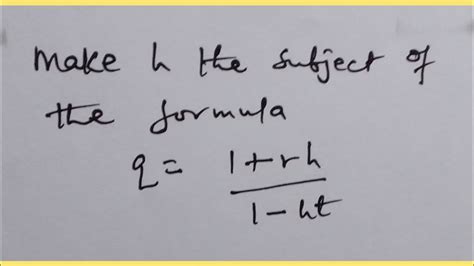 make h the subject of
the formula
q = 1+rh
1-ht